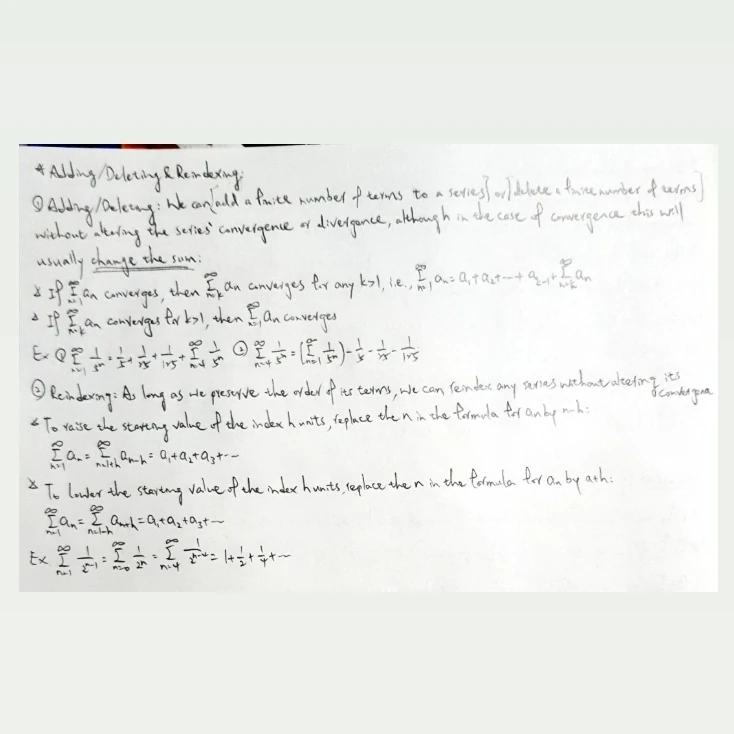 * Adding/Deleting & Reindexing:
① Adding/Deleting: We can [add a finite number of terms to a series] or [delete a finite number of terms]
without altering the series' convergence or divergence, although in the case of convergence this will
usually change the sum:
* If ∑_{n=1}^{∞} an converges, then ∑_{n=k}^{∞} an converges for any k>1, i.e., ∑_{n=1}^{∞} an = a₁+a₂+---+a_{k-1}+∑_{n=k}^{∞} an
* If ∑_{n=k}^{∞} an converges for k>1, then ∑_{n=1}^{∞} an converges
Ex ① ∑_{n=1}^{∞} 1/5ⁿ = 1/5 + 1/25 + 1/125 + ∑_{n=4}^{∞} 1/5ⁿ ② ∑_{n=4}^{∞} 1/5ⁿ = (∑_{n=1}^{∞} 1/5ⁿ) - 1/5 - 1/25 - 1/125
② Reindexing: As long as we preserve the order of its terms, we can reindex any series without altering its convergence
* To raise the starting value of the index h units, replace the n in the formula for an by n-h:
∑_{n=1}^{∞} an = ∑_{n=1+h}^{∞} a_{n-h} = a₁+a₂+a₃+---
* To lower the starting value of the index h units, replace the n in the formula for an by a+h:
∑_{n=1}^{∞} an = ∑_{n=1-h}^{∞} a_{n+h} = a₁+a₂+a₃+---
Ex ∑_{n=1}^{∞} 1/2^{n-1} = ∑_{n=0}^{∞} 1/2ⁿ = ∑_{n=-4}^{∞} 1/2^{n+4} = 1+1/2+1/4+---